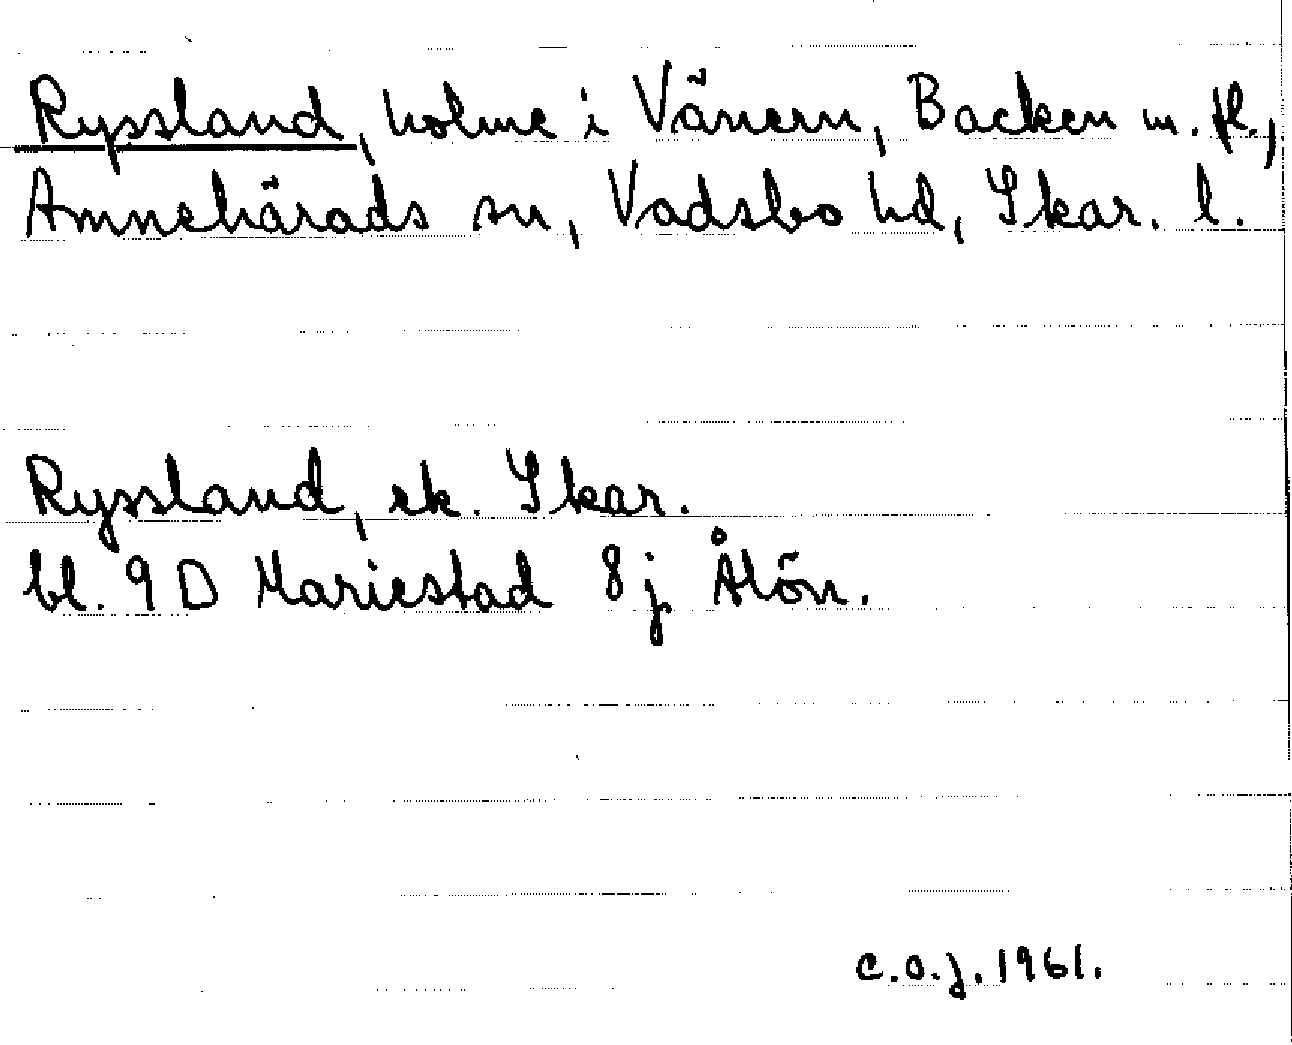 Ryssland, holme i Vänern, Backen m. fl.,
Amnehärads sn, Vadsbo hd, Skar. l.
Ryssland, ek. Skar.
bl. 9 D Mariestad 8 j Åtön.
C.O.J. 1961.